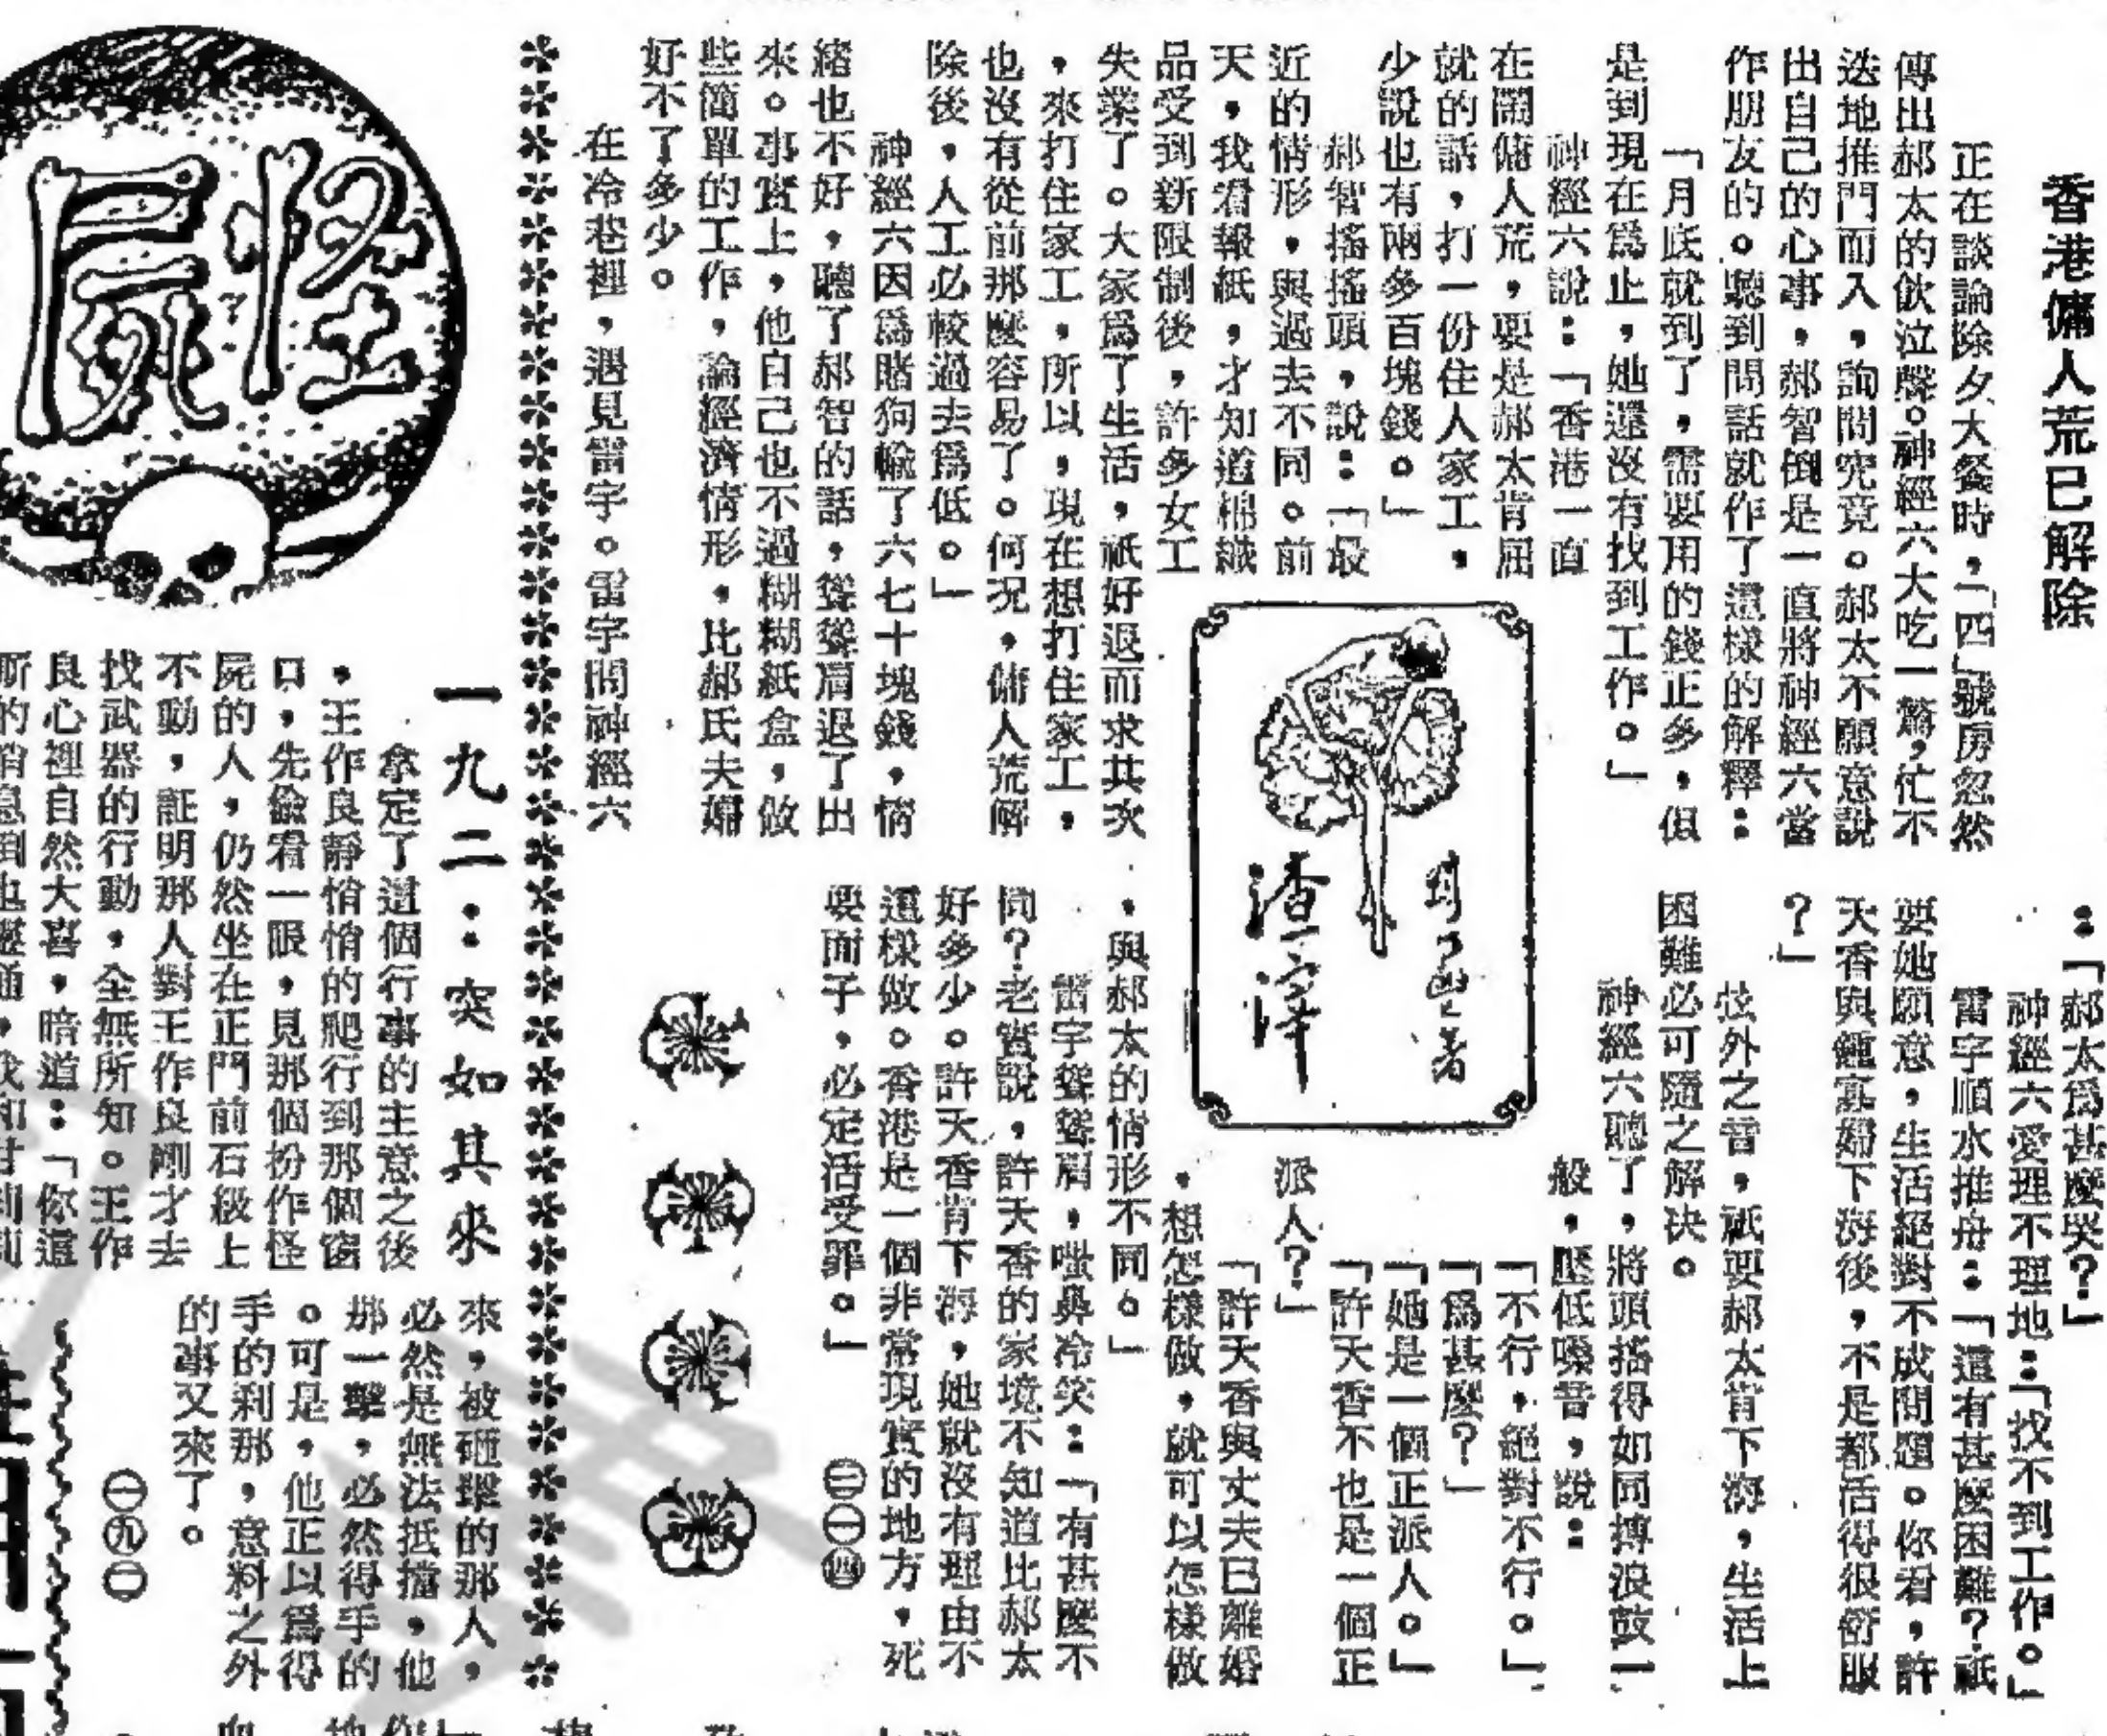 香港傭人荒已解除
正在談論除夕大餐時，「四」號房忽然
傳出郝太的飲泣聲。神經六大吃一驚，忙不
迭地推門而入，詢問究竟。郝太不願意說
出自己的心事，郝智倒是一直將神經六當
作朋友的。聽到問話就作了這樣的解釋：
「月底就到了，需要用的錢正多，但
是到現在爲止，她還沒有找到工作。」
神經六說：「香港一直
在鬧傭人荒，要是郝太肯屈
就的話，打一份住人家工，
少說也有兩多百塊錢。」
郝智搖搖頭，說：「最
近的情形，與過去不同。前
天，我看報紙，才知道棉織
品受到新限制後，許多女工
失業了。大家爲了生活，祇好退而求其次
，來打住家工，所以，現在想打住家工，
也沒有從前那麼容易了。何況，傭人荒解
除後，人工必較過去爲低。」
神經六因爲賭狗輸了六七十塊錢，情
緒也不好，聽了郝智的話，聳聳肩退了出
來。事實上，他自己也不過糊糊紙盒，做
些簡單的工作，論經濟情形，比郝氏夫婦
好不了多少。
在冷巷裡，遇見雷宇。雷宇問神經六
：「郝太爲甚麼哭？」
神經六愛理不理地：「找不到工作。」
雷宇順水推舟：「還有甚麼困難？祇
要她願意，生活絕對不成問題。你看，許
天香與鍾寡婦下海後，不是都活得很舒服
？」
弦外之音，祇要郝太肯下海，生活上
困難必可隨之解決。
神經六聽了，將頭搖得如同搏浪鼓一
般，壓低嗓音，說：
「不行，絕對不行。」
「爲甚麼？」
「她是一個正派人。」
「許天香不也是一個正
派人？」
「許天香與丈夫已離婚
，想怎樣做，就可以怎樣做
，與郝太的情形不同。」
雷宇聳聳肩，嗤鼻冷笑：「有甚麼不
同？老實說，許天香的家境不知道比郝太
好多少。許天香肯下海，她就沒有理由不
這樣做。香港是一個非常現實的地方，死
要面子，必定活受罪。」
㊁㊀㊃
著
渣
怪屍
一九二：突如其來
拿定了這個行事的主意之後
，王作良靜悄悄的爬行到那個窗
口，先儉看一眼，見那個扮作怪
屍的人，仍然坐在正門前石級上
不動，証明那人對王作良剛才去
找武器的行動，全無所知。王作
良心裡自然大喜，暗道：「你這
來，被砸擊的那人，
必然是無法抵擋，他
那一擊，必然得手的
。可是，他正以爲得
手的刹那，意料之外
的事又來了。
㊀㊈㊁